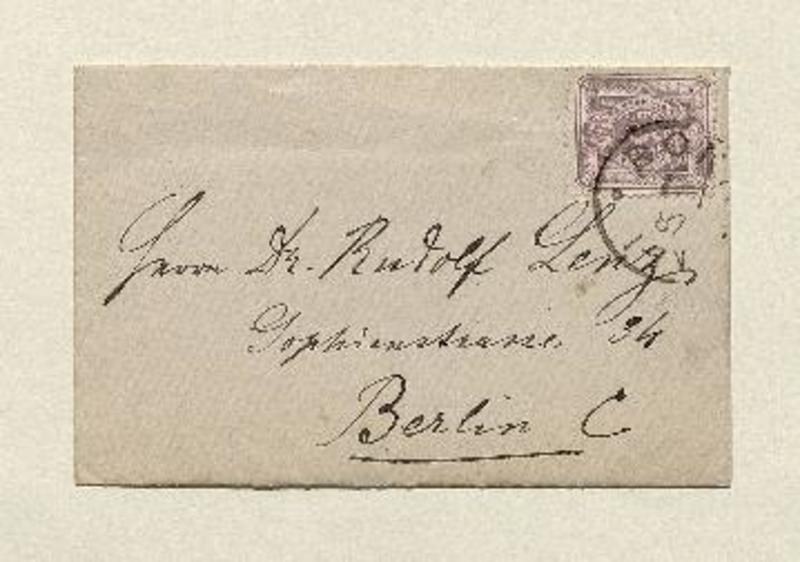 Herrn Dr. Rudolf Lenz
Sophienstrasse 34
Berlin C